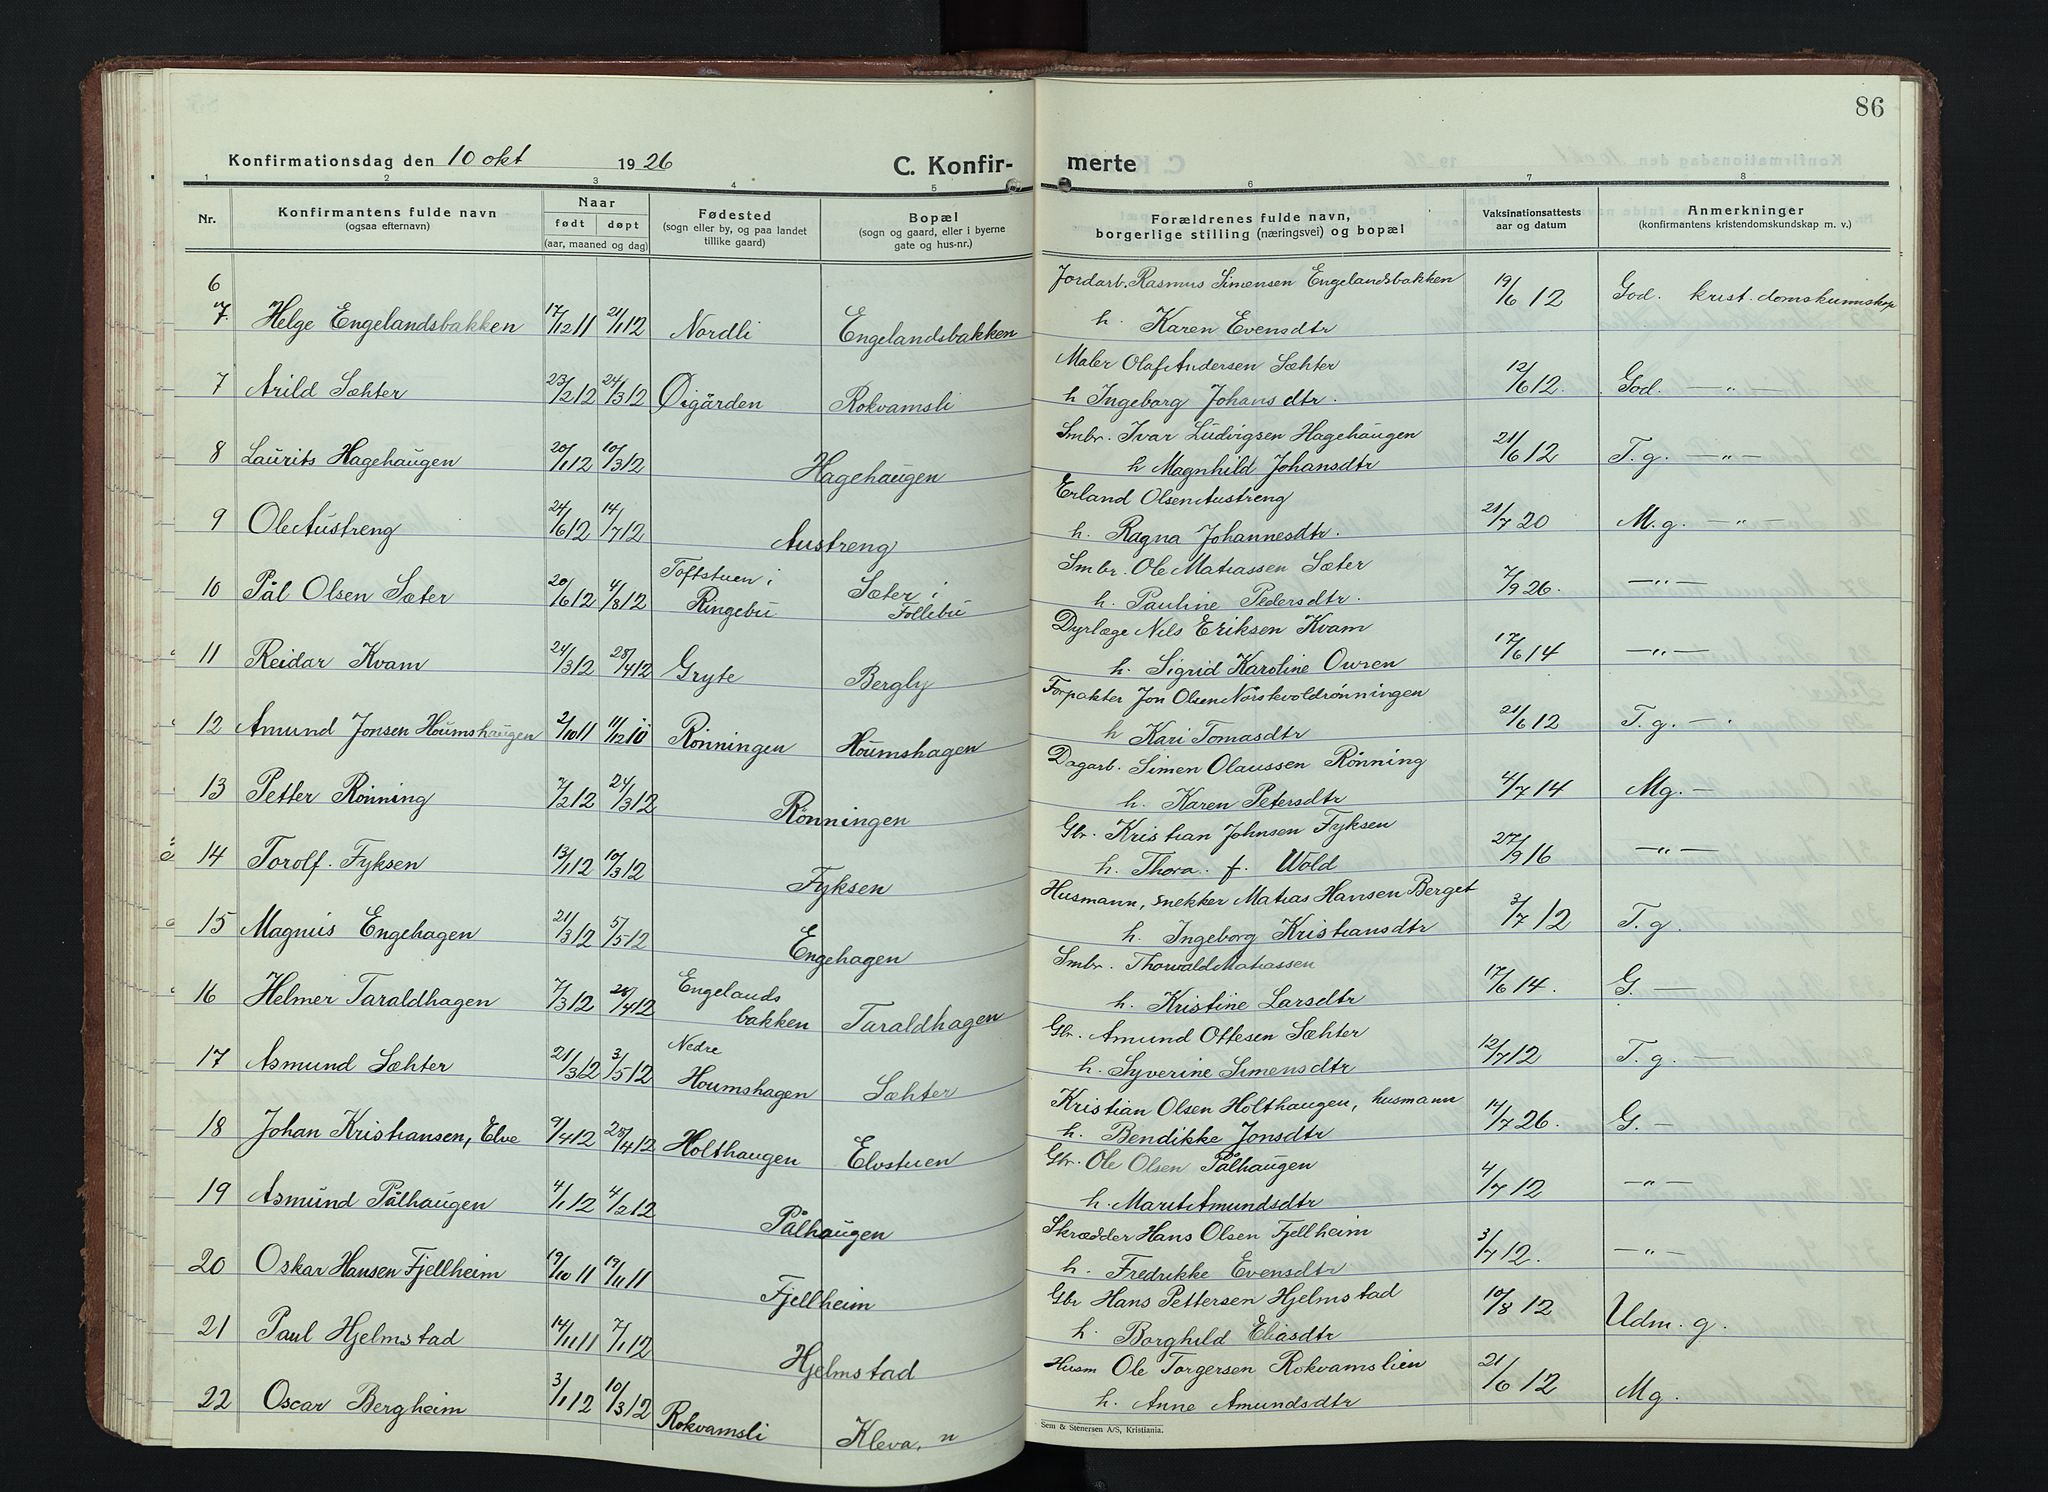 86
Konfirmationsdag den 10 okt 1926
C. Konfir-merte
1 2 3 4 5 6 7 8
Nr.
Konfirmantens fulde navn
(ogsaa efternavn)
Naar
født døpt
(aar, maaned og dag)
Fødested
(sogn eller by, og paa landet
tillike gaard)
Bopæl
(sogn og gaard, eller i byerne
gate og hus-nr.)
Forældrenes fulde navn,
borgerlige stilling (næringsvei) og bopæl
Vaksinationsattests
aar og datum
Anmerkninger
(konfirmantens kristendomskundskap m. v.)
6
7. Helge Engelandsbakken 17/12 11 21/1 12 Nordli Engelandsbakken
Jordarb. Rasmus Simensen Engelandsbakken 19/6 12 God. krist.domskunnskap
h. Karen Evensdtr
7 Arild Sæhter 23/2 12 24/3 12 Øigården Rokvamsli
Maler Olaf Andersen Sæhter 12/6 12. God. —„—
h Ingeborg Johansdtr.
8 Laurits Hagehaugen 20/1 12 10/3 12 Hagehaugen
Smbr. Ivar Ludvigsen Hagehaugen 21/6 12 T. g. —„—
h Magnhild Johansdtr
9 Ole Austreng 24/6 12 14/7 12 Austreng
Erland Olsen Austreng 21/7 20 M. g. —„—
h. Ragna Johannesdtr.
10 Pål Olsen Sæter 20/6 12 4/8 12 Toftstuen i Ringebu Sæter i Follebu
Smbr. Ole Matiassen Sæter 7/9 26. —„—
h. Pauline Pedersdtr.
11 Reidar Kvam 24/3 12 28/4 12 Gryte Bergly
Dyrlæge Nils Eriksen Kvam 17/6 14 —„—
h. Sigrid Karoline Owren
12 Amund Jonsen Houmshaugen 2/10 11 11/12 10 Rønningen Houmshagen
Forpakter Jon Olsen Norskvoldrønningen 21/6 12 T. g. —
h Kari Tomasdtr
13 Petter Rønning 7/2 12 24/3 12 Rønningen
Dagarb. Simen Olaussen Rønning 4/7 14 Mg. —
h. Karen Petersdtr
14 Torolf. Fyksen 13/1 12 10/3 12 Fyksen
Gbr. Kristian Johnsen Fyksen 27/9 16 —„—
h. Thora. f. Wold
15 Magnus Engehagen 21/3 12 5/5 12 Engehagen
Husmann, snekker Matias Hansen Berget 3/7 12 T. g.
h. Ingeborg Kristiansdtr
16 Helmer Taraldhagen 7/3 12 28/4 12 Engelands bakken Taraldhagen
Smbr. Thorvald Matiassen 17/6 14. G. —
h. Kristine Larsdtr
17 Asmund Sæhter 21/3 12 3/5 12 Nedre Houmshagen Sæhter
Gbr. Amund Ottesen Sæhter 12/7 12 T. g. —
h. Syverine Simensdtr
18 Johan Kristiansen, Elve 9/4 12 28/4 12 Holthaugen Elvstuen
Kristian Olsen Holthaugen, husmann 14/7 26. G. —
h. Bendikke Jonsdtr
19 Asmund Pålhaugen 4/1 12 4/2 12 Pålhaugen
Gbr. Ole Olsen Pålhaugen 4/7 12 —„—
h. Marit Amundsdtr
20 Oskar Hansen Fjellheim 19/10 11 19/11 11 Fjellheim
Skrædder Hans Olsen Fjellheim 3/7 12. —„—
h. Fredrikke Evensdtr
21 Paul Hjelmstad 14/11 11 7/1 12 Hjelmstad
Gbr Hans Pettersen Hjelmstad 10/8 12 Udm. g.
h. Borghild Eliasdtr
22 Oscar Bergheim 3/1 12 10/3 12 Rokvamsli Kleva, n
Husm Ole Torgersen Rokvamslien 21/6 12 Mg.
h. Anne Amundsdtr
Sem & Stenersen A/S, Kristiania.